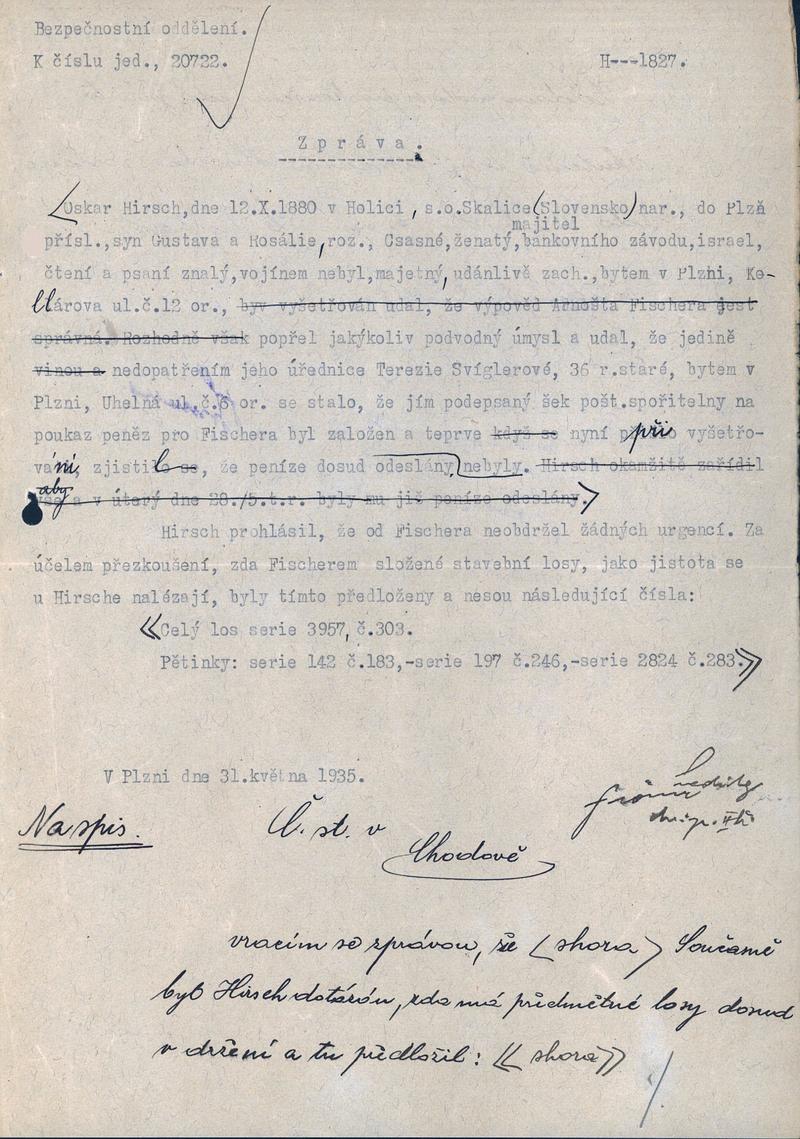 Bezpečnostní oddělení.
K číslu jed., 20722.
H---1827.
Zpráva.
Oskar Hirsch,dne 12.X.1880 v Holici, s.o.Skalice(Slovensko)nar., do Plzň
majitel
přísl.,syn Gustava a Rosálie,roz., Csasné,ženatý,bankovního závodu,israel,
čtení a psaní znalý,vojínem nebyl,majetný,udánlivě zach.,bytem v Plzni, Ke-
llárova ul.č.12 or., byv vyšetřován udal, že výpověd Arnošta Fischera jest
správná. Rozhodně však popřel jakýkoliv podvodný úmysl a udal, že jedině
vinou a nedopatřením jeho úřednice Terezie Svíglerové, 36 r.staré, bytem v
Plzni, Uhelná ul.č.6 or. se stalo, že jím podepsaný šek pošt.spořitelny na
poukaz peněz pro Fischera byl založen a teprve když se nyní při vyšetřo-
vání, zjistilo se, že peníze dosud odeslány nebyly. Hirsch okamžitě zařídil
aby
vše a v úterý dne 28./5.t.r. byly mu již peníze odeslány.
Hirsch prohlásil, že od Fischera neobdržel žádných urgencí. Za
účelem přezkoušení, zda Fischerem složené stavební losy, jako jistota se
u Hirsche nalézají, byly tímto předloženy a nesou následující čísla:
Celý los serie 3957, č.303.
Pětinky: serie 142 č.183,-serie 197 č.246,-serie 2824 č.283.
V Plzni dne 31.května 1935.
Na spis.
Č. st. v
Chodově
vracím se zprávou, že < shora > Současně
byl Hirsch dotázán, zda má předmětné losy dosud
v držení a tu předložil: << shora >>